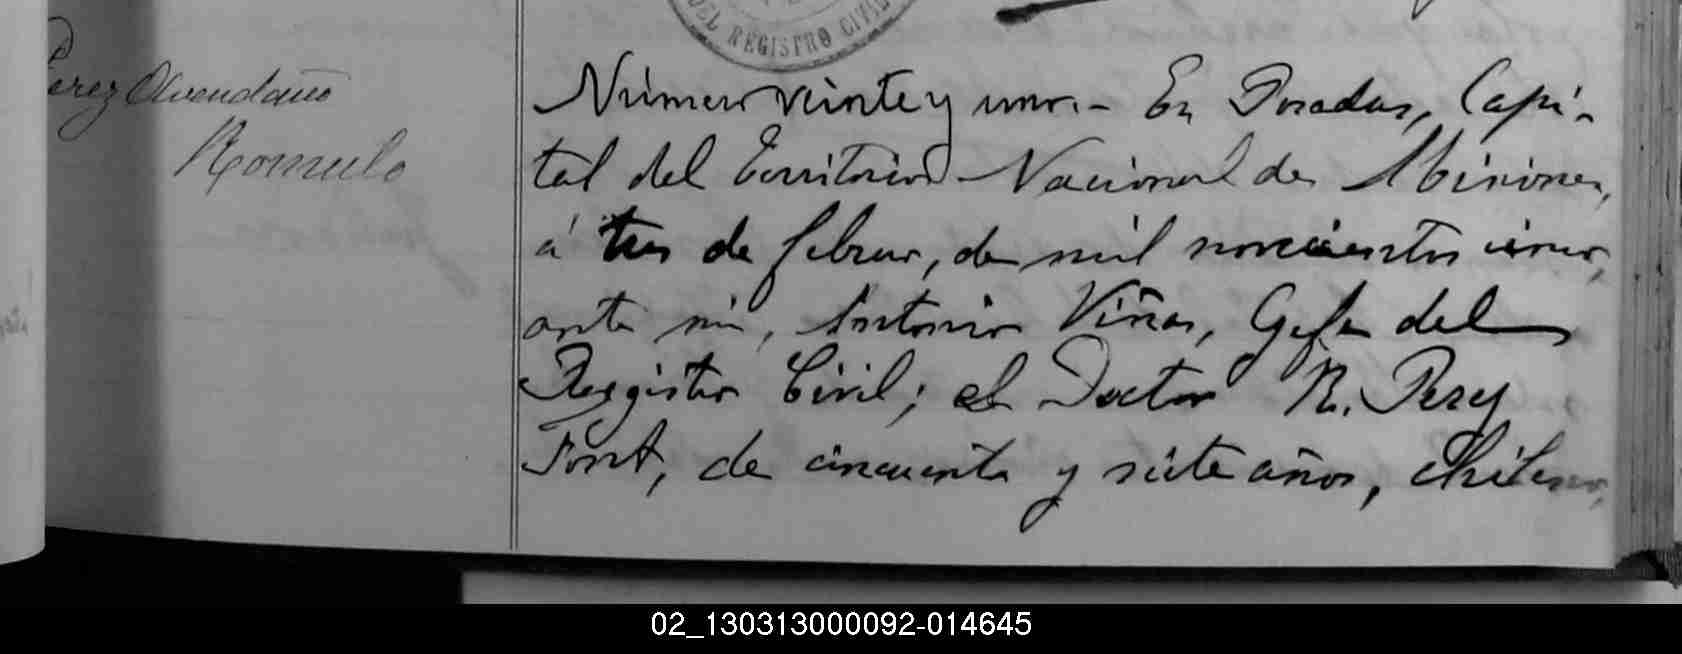 DEL REGISTRO CIVIL
Perez Avendaño
Romulo
Número veinte y uno.- En Posadas, Capi-
tal del Territorio Nacional de Misiones,
á tres de febrero, de mil novecientos cinco,
ante mi, Antonio Viñas, Gefe del
Registro Civil; el Doctor R. Perez
Font, de cincuenta y siete años, chileno,
02_130313000092-014645